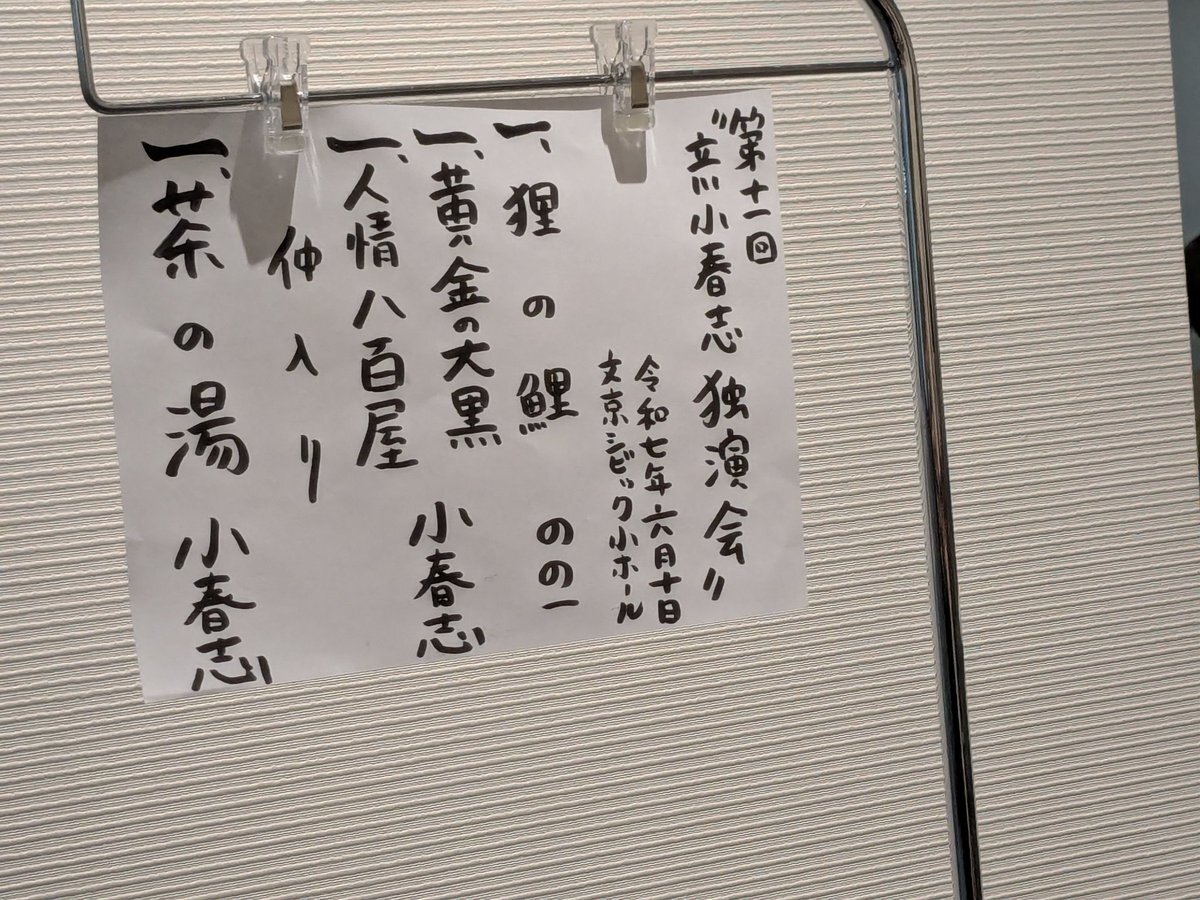 第十一回
〝立川小春志 独演会〟
令和七年六月十日
文京シビック小ホール
一、狸の鯉 のの一
一、黄金の大黒 小春志
一、人情八百屋
仲入り
一、茶の湯 小春志